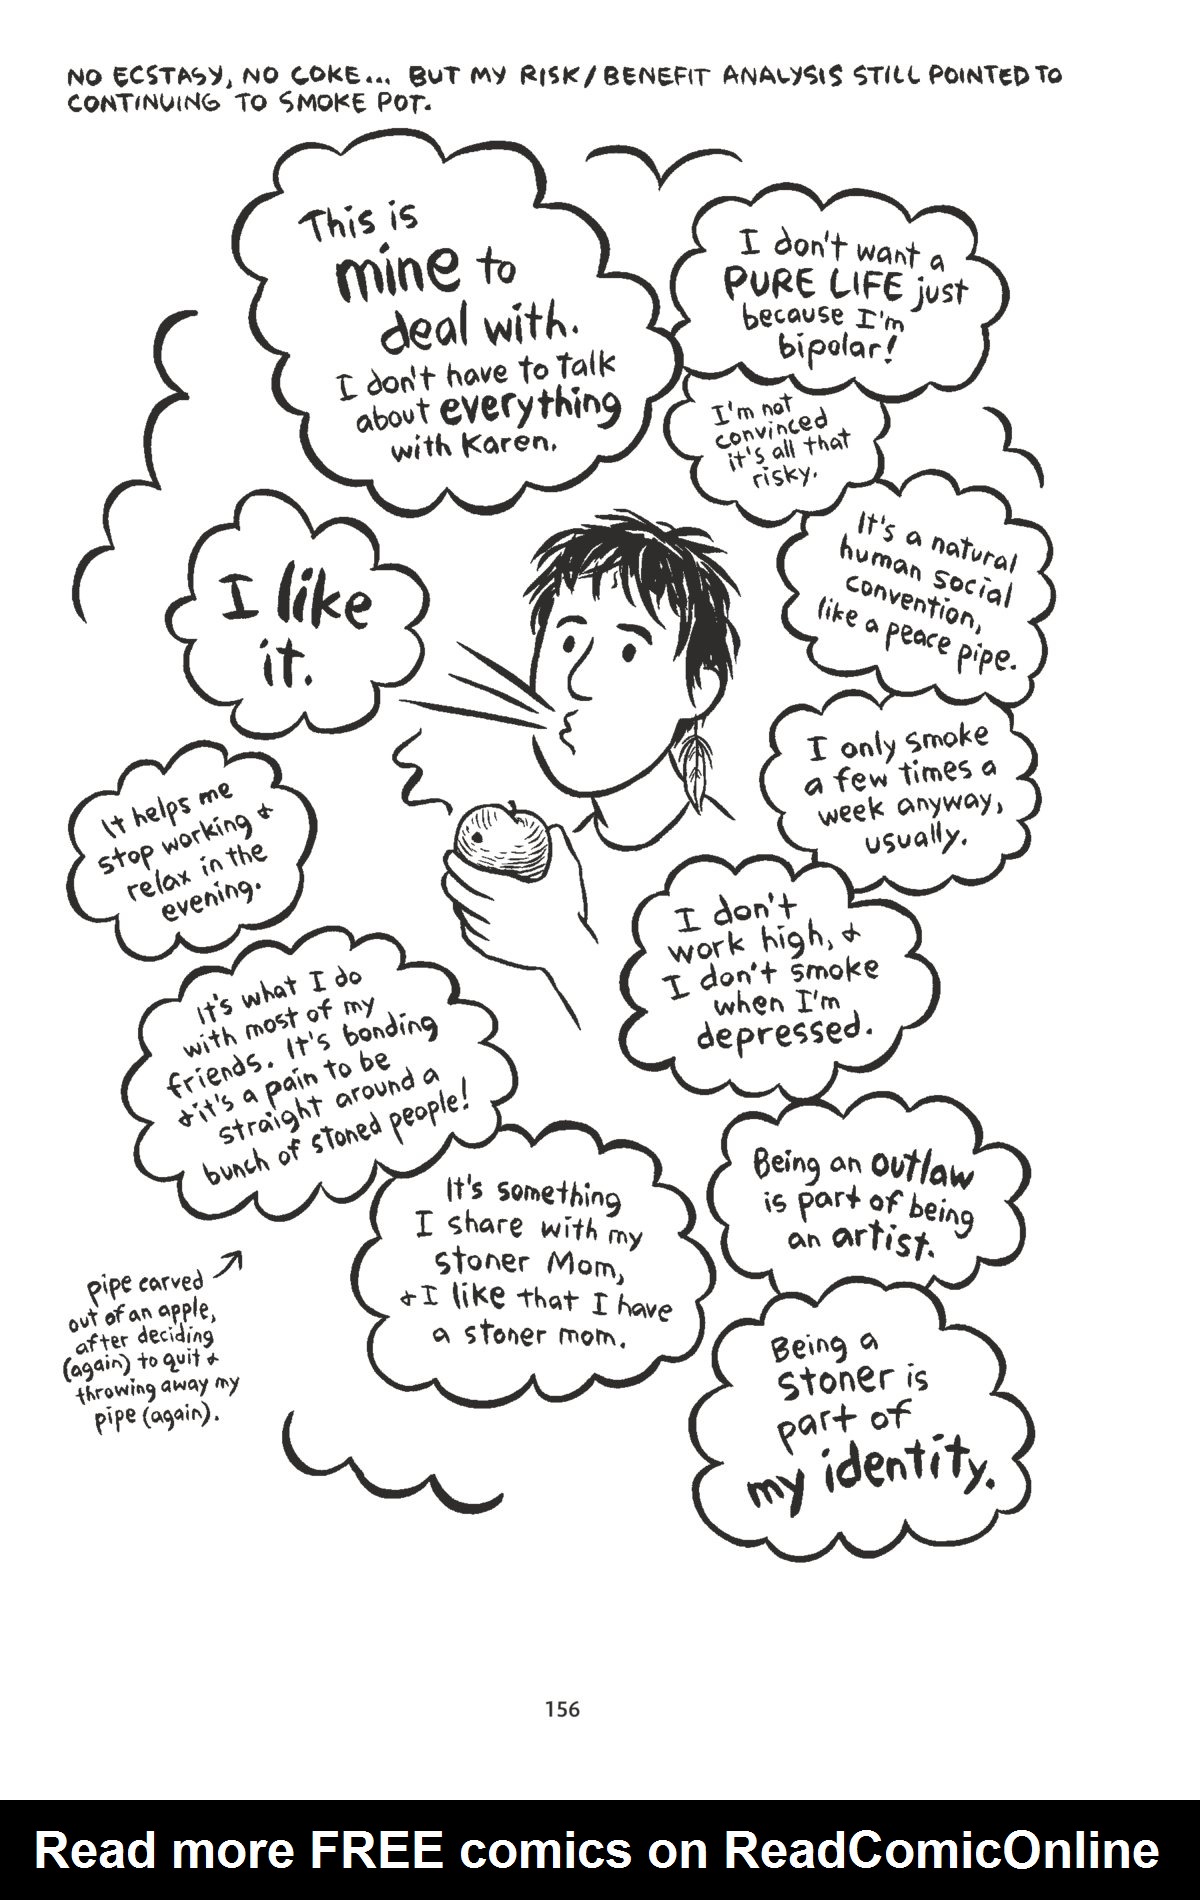 NO ECSTASY, NO COKE... BUT MY RISK/BENEFIT ANALYSIS STILL POINTED TO
CONTINUING TO SMOKE POT.
This is
mine to
deal with.
I don't have to talk
about everything
with Karen.
I don't want a
PURE LIFE just
because I'm
bipolar!
I'm not
convinced
it's all that
risky.
It's a natural
human social
convention,
like a peace pipe.
I like
it.
I only smoke
a few times a
week anyway,
usually.
It helps me
stop working &
relax in the
evening.
I don't
work high, &
I don't smoke
when I'm
depressed.
It's what I do
with most of my
friends. It's bonding
& it's a pain to be
straight around a
bunch of stoned people!
Being an outlaw
is part of being
an artist.
It's something
I share with my
stoner Mom,
& I like that I have
a stoner mom.
pipe carved
out of an apple,
after deciding
(again) to quit &
throwing away my
pipe (again).
Being a
stoner is
part of
my identity.
156
Read more FREE comics on ReadComicOnline